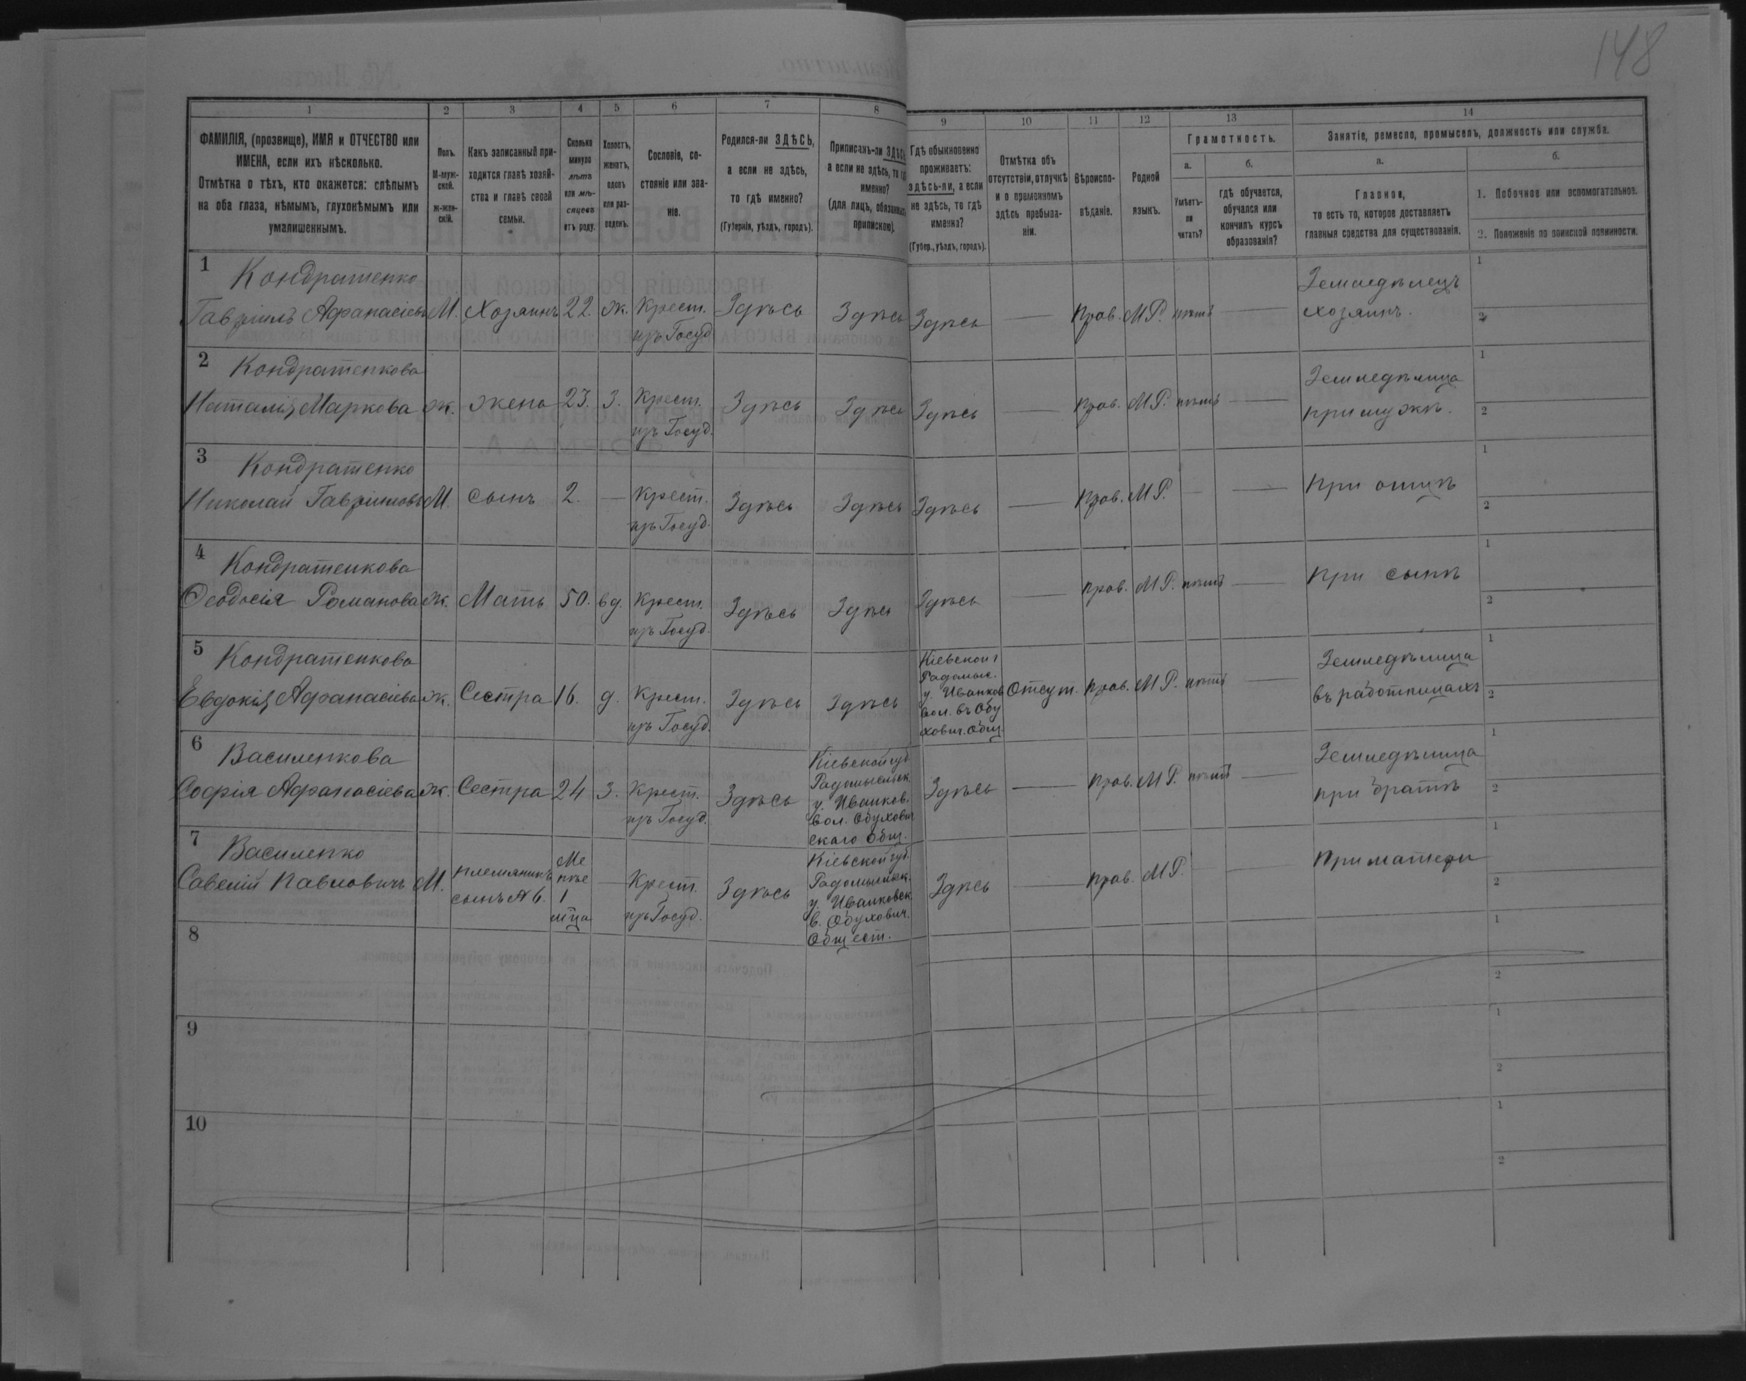 148
1 2 3 4 5 6 7 8 9 10 11 12 13 14
ФАМИЛІЯ, (прозвище), ИМЯ и ОТЧЕСТВО или
ИМЕНА, если ихъ нѣсколько.
Отмѣтка о тѣхъ, кто окажется: слѣпымъ
на оба глаза, нѣмымъ, глухонѣмымъ или
умалишеннымъ.
Полъ.
М-муж-
ской.
ж-жен-
скій.
Какъ записанный при-
ходится главѣ хозяй-
ства и главѣ своей
семьи.
Сколько
минуло
лѣтъ
или мѣ-
сяцевъ
отъ роду.
Холостъ,
женатъ,
вдовъ
или раз-
веденъ.
Сословіе, со-
стояніе или зва-
ніе.
Родился-ли ЗДѢСЬ,
а если не здѣсь,
то гдѣ именно?
(Губернія, уѣздъ, городъ).
Приписанъ-ли ЗДѢСЬ,
а если не здѣсь, то гдѣ
именно?
(для лицъ, обязанныхъ
припискою).
Гдѣ обыкновенно
проживаетъ:
ЗДѢСЬ-ли, а если
не здѣсь, то гдѣ
именно?
(Губер., уѣздъ, городъ).
Отмѣтка объ
отсутствіи, отлучкѣ
и о временномъ
здѣсь пребыва-
ніи.
Вѣроиспо-
вѣданіе.
Родной
языкъ.
Грамотность.
а.
Умѣетъ-
ли
читать?
б.
гдѣ обучается,
обучался или
кончилъ курсъ
образованія?
Занятіе, ремесло, промыселъ, должность или служба.
а.
Главное,
то есть то, которое доставляетъ
главныя средства для существованія.
б.
1. Побочное или вспомогательное.
2. Положеніе по воинской повинности.
1 Кондратенко Земледѣлецъ 1
Гавріилъ Афанасіевъ М. Хозяинъ 22. ж. Крест. Здѣсь Здѣсь Здѣсь — Прав. М.Р. нѣтъ — хозяинъ. 2
изъ Госуд.
2 Кондратенкова Земледѣлица 1
Наталія Маркова ж. жена 23. З. Крест. Здѣсь Здѣсь Здѣсь — Прав. М.Р. нѣтъ — при мужѣ. 2
изъ Госуд.
3 Кондратенко 1
Николай Гавріиловъ М. сынъ 2. — Крест. Здѣсь Здѣсь Здѣсь — Прав. М.Р. — — При отцѣ 2
изъ Госуд.
4 Кондратенкова 1
Ѳеодосія Романова ж. Мать 50. вд. Крест. Здѣсь Здѣсь Здѣсь — Прав. М.Р. нѣтъ — При сынѣ 2
изъ Госуд.
5 Кондратенкова Кіевской г Земледѣлица 1
Радомыс.
Евдокія Афанасіева ж. Сестра 16. д. Крест. Здѣсь Здѣсь у. Иванков Отсут. Прав. М.Р. нѣтъ — въ работницахъ 2
изъ Госуд. вол. въ Обу
хович. Общ.
6 Василенкова Кіевской губ. Земледѣлица 1
Радомысльск.
Софія Афанасіева ж. Сестра 24 З. Крест. Здѣсь у. Иванков. Здѣсь — Прав. М.Р. нѣтъ — при братѣ 2
изъ Госуд. вол. Обухович
скаго Общ.
7 Василенко Ме Кіевской губ. 1
Савелій Павловичъ М. племянникъ нѣе — Крест. Здѣсь Радомысльск. Здѣсь — Прав. М.Р. — — При матери 2
сынъ N 6. 1 изъ Госуд. у. Иванковск.
мѣца в. Обухович.
Общест.
8 1
2
9 1
2
10 1
2